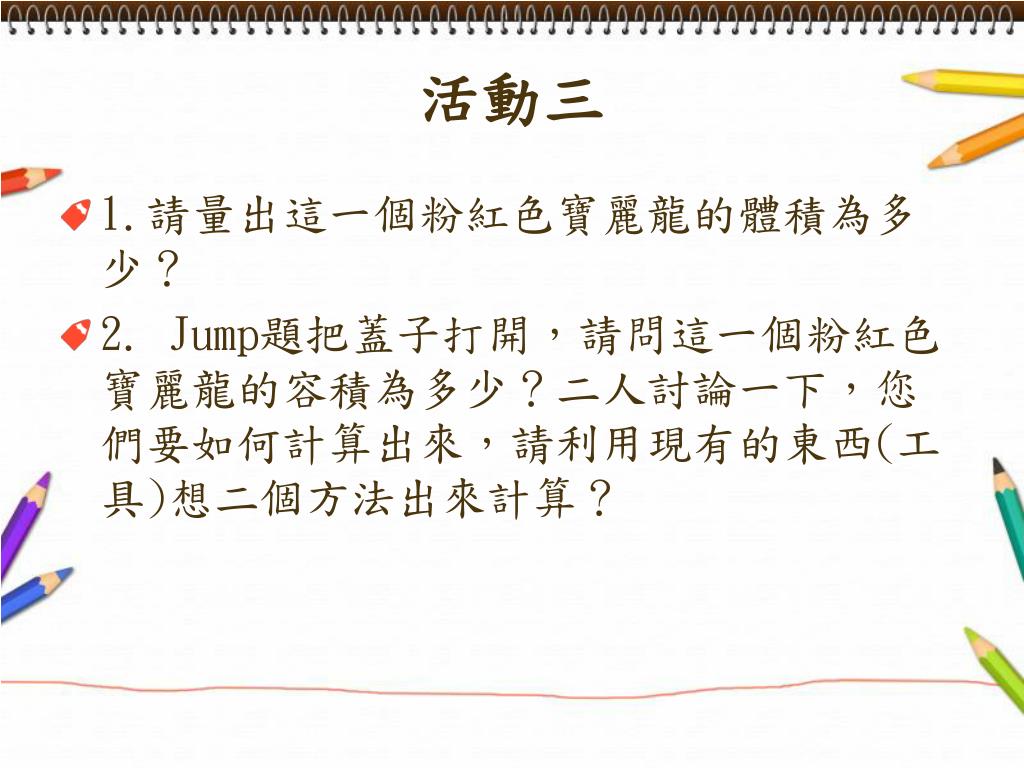 活動三
1.請量出這一個粉紅色寶麗龍的體積為多
少？
2. Jump題把蓋子打開，請問這一個粉紅色
寶麗龍的容積為多少？二人討論一下，您
們要如何計算出來，請利用現有的東西(工
具)想二個方法出來計算？